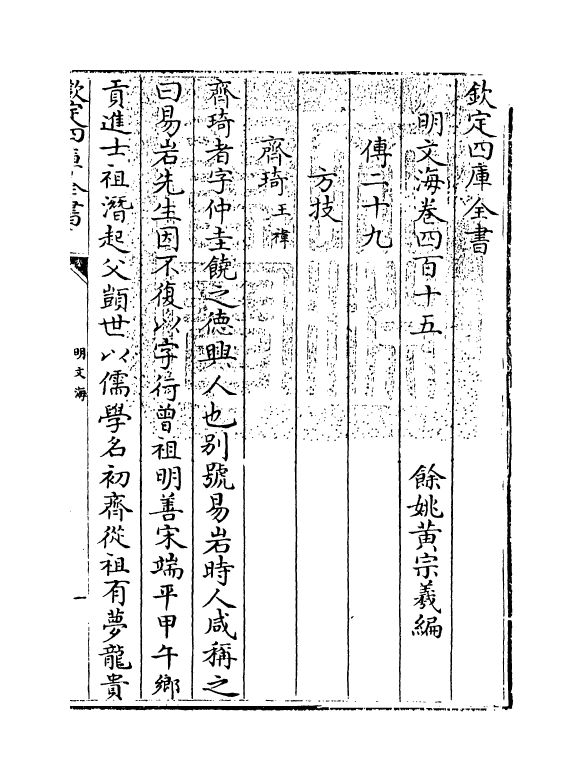 欽定四庫全書
明文海卷四百十五
餘姚黃宗羲編
傳二十九
方技
齊琦王褘
齊琦者字仲圭饒之德興人也別號易岩時人咸稱之
曰易岩先生因不復以字行曾祖明善宋端平甲午鄉
貢進士祖潛起父顗世以儒學名初齊從祖有夢龍貴
欽定四庫全書
明文海
一